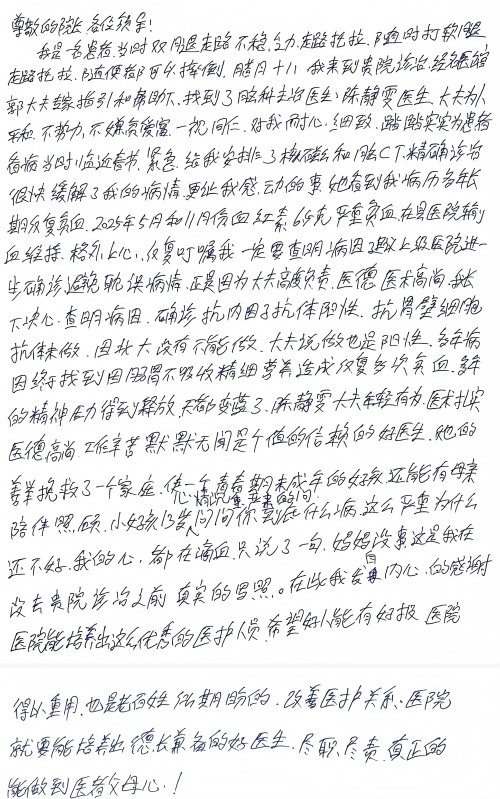 尊敬的院长 各位领导！
我是一名患者，当时双腿走路不稳，乏力，走路拖拉，随时打软腿
走路拖拉，随便都可以摔倒，腊月十八 我来到贵院诊治，经名医馆
郭大夫 指引和帮助下，找到了脑科主治医生，陈静雯医生，大夫为人
平和，不势力，不嫌贫爱富，一视同仁，对我耐心，细致，踏踏实实为患者
看病 当时临近春节，紧急，给我安排了核磁和脑CT，精确诊治
很快缓解了我的病情，更让我感动的事，她看到我病历多年长
期反复贫血，2025年5月和11月份血红素 克严重贫血，在县医院输
血维持，格外上心，反复叮嘱我一定要查明病因，建议上级医院进一
步确诊避免耽误病情，正是因为大夫高度负责，医德医术高尚，我
下决心，查明病因，确诊 抗内因子抗体阳性，抗胃壁细胞
抗体未做，因北大没有不能做，大夫说做也是阳性，多年病
因终于找到因肠胃不吸收精细营养造成反复多次贫血，多年
的精神压力得到释放，天都变蓝了，陈静雯大夫年轻有为，医术扎实
医德高尚，工作辛苦 默默无闻是个值的信赖的好医生，她的
善举挽救了一个家庭，使一个青春期未成年的女孩还能有母亲
陪伴照顾，小女孩13岁 问你到底什么病，这么严重为什么
还不好，我的心，都在滴血，只说了一句，妈妈没事，这是我在
没去贵院诊治之前 真实的写照。在此我发自内心的感谢
医院能培养出这么优秀的医护人员，希望好人能有好报，医院
得以重用，也是老百姓所期盼的，改善医护关系，医院
就要能培养出德长兼备的好医生，尽职，尽责，真正的
能做到医者父母心！